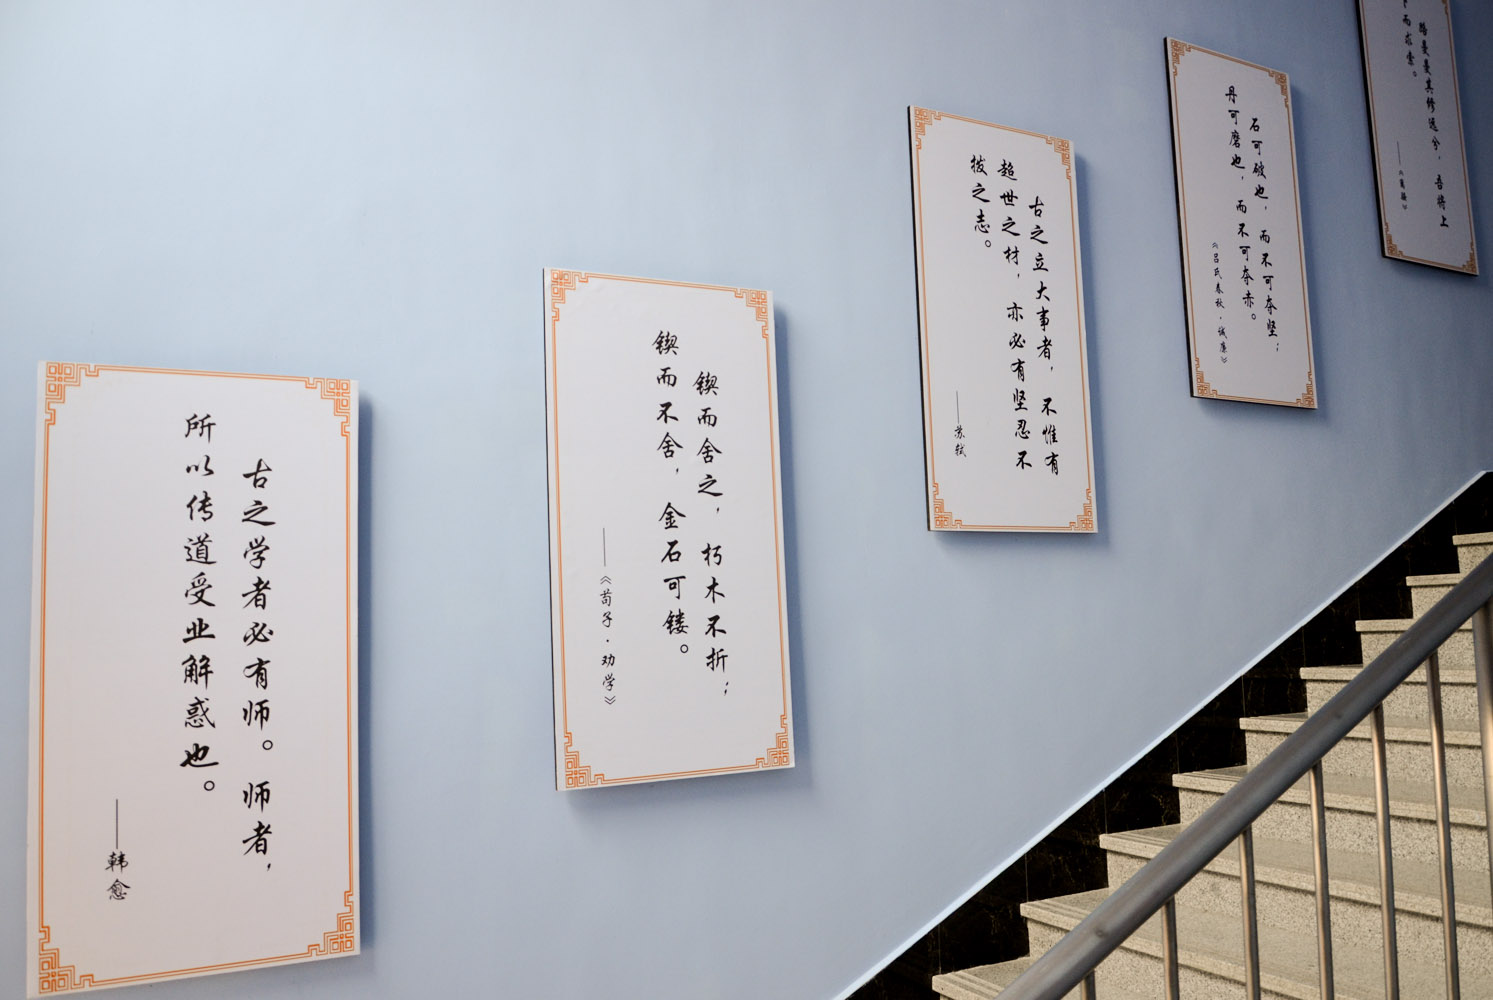 古之学者必有师。师者，
所以传道受业解惑也。
——韩愈
锲而舍之，朽木不折；
锲而不舍，金石可镂。
——《荀子·劝学》
古之立大事者，不惟有
超世之材，亦必有坚忍不
拔之志。
——苏轼
石可破也，而不可夺坚；
丹可磨也，而不可夺赤。
《吕氏春秋·诚廉》
路曼曼其修远兮，吾将上
而求索。
——《离骚》